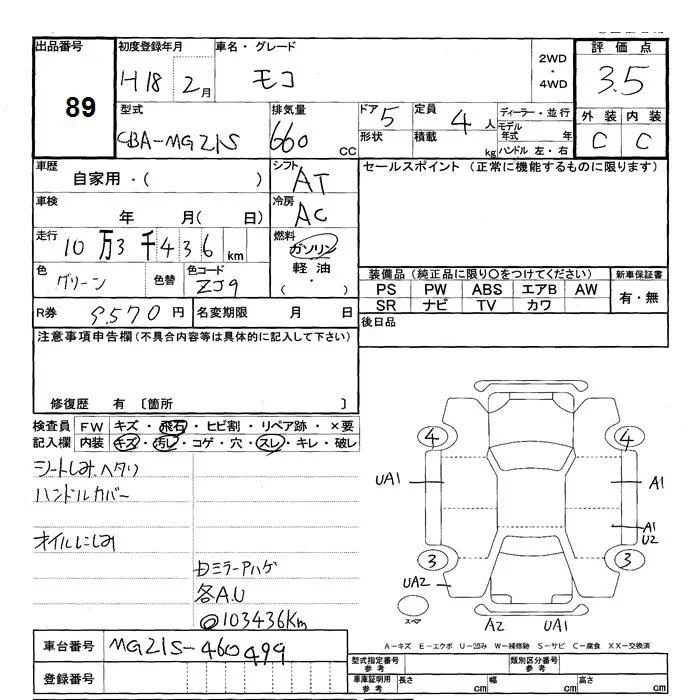 出品番号 初度登録年月 車名・グレード 2WD・4WD 評価点
89 H18 2月 モコ 3.5
型式 排気量 ドア 5 定員 4人 ディーラー・並行 外装 内装
CBA-MG21S 660 CC 形状 積載 kg モデル年式 年 ハンドル 左・右 C C
車歴 自家用・( ) シフト AT セールスポイント (正常に機能するものに限ります)
車検 年 月( 日) 冷房 AC
走行 10万3千436km 燃料 ガソリン 軽油 ( ・ )
色 グリーン 色替 色コード ZJ9
装備品 (純正品に限り○をつけてください) 新車保証書
PS PW ABS エアB AW 有・無
SR ナビ TV カワ
R券 9570円 名変期限 月 日 後日品
注意事項申告欄 (不具合内容等は具体的に記入して下さい)
修復歴 有 〔箇所 〕
検査員 FW キズ・飛石・ヒビ割・リペア跡・×要
記入欄 内装 キズ・汚レ・コゲ・穴・スレ・キレ・破レ
シートしみ、ヘタリ
ハンドルカバー
オイルにじみ
ミラーアハゲ
各A.U
◎103436Km
4 4
UA1 A1
A1
U2
3 3
UA2
スペア
A2 UA1
A-キズ E-エクボ U-凹み W-補修跡 S-サビ C-腐食 XX-交換済
車台番号 MG21S-460499
登録番号
型式指定番号 参考 類別区分番号 参考
車庫証明用 参考 長さ cm 幅 cm 高さ cm